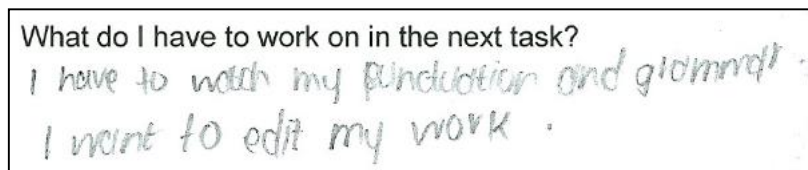 What do I have to work on in the next task?
I have to watch my punctuation and grammar.
I want to edit my work.